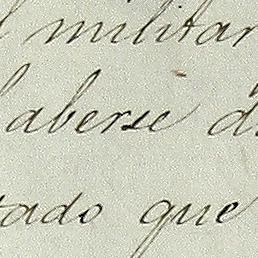 l militar
haberse d
tado que